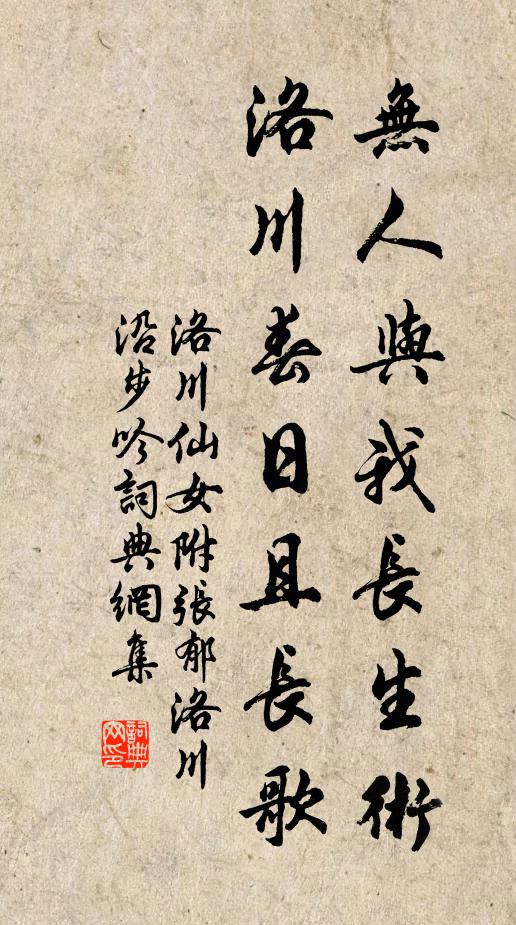 無人與我長生術
洛川春日且長歌
洛川仙女附張郁洛川
沿步吟詞典網集
詞典
网印